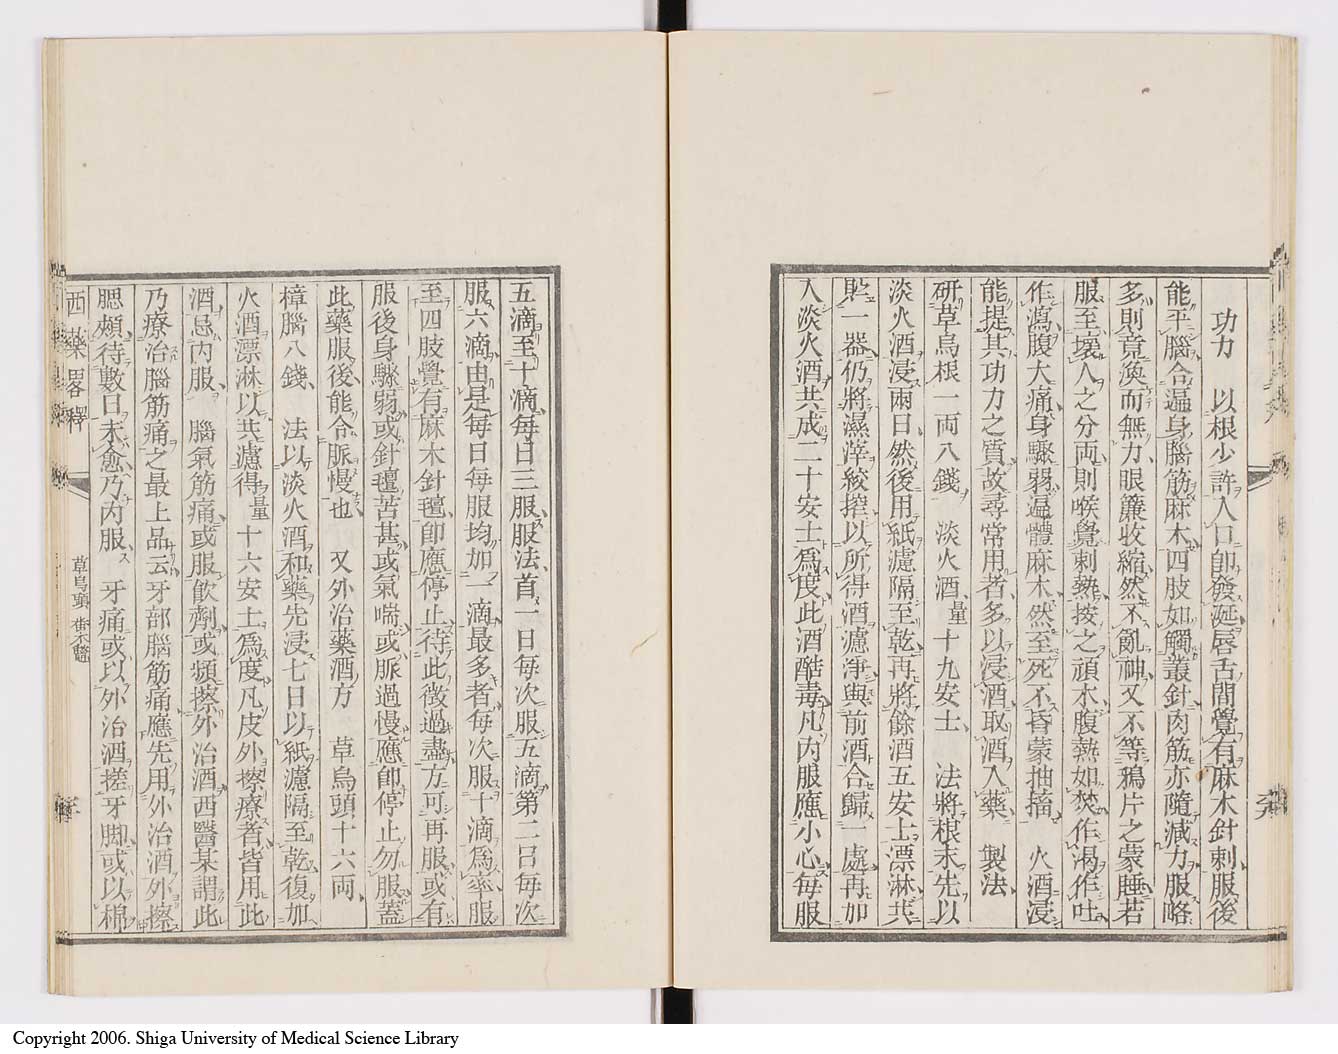 功力　以根少許入口卽發涎唇舌間覺有麻木針刺服後
能平腦合遍身腦筋麻木四肢如觸叢針肉筋亦隨減力服略
多則竟渙而無力眼簾收縮然不亂神又不等鴉片之蒙睡若
服至壞人之分兩則喉覺刺熱按之頑木腹熱如焚作渴作吐
作瀉腹大痛身驟弱遍體麻木然至死不昏蒙抽搐　火酒浸
能提其功力之質故尋常用者多以浸酒取酒入藥　製法
研草烏根一兩八錢　淡火酒量十九安士　法將根末先以
淡火酒浸兩日然後用紙濾隔至乾再將餘酒五安士漂淋共
貯一器仍將濕滓絞搾以所得酒濾淨與前酒合歸一處再加
入淡火酒共成二十安士爲度此酒酷毒凡内服應小心每服
五滴至十滴每日三服服法首一日每次服五滴第二日每次
服六滴由是每日每服均加一滴最多者每次服十滴爲率服
至四肢覺有麻木針氊卽應停止待此徴過盡方可再服或有
服後身驟弱或針氊苦甚或氣喘或脈過慢應卽停止勿服蓋
此藥服後能令脈慢也　又外治藥酒方　草烏頭十六兩
樟腦八錢　法以淡火酒和藥先浸七日以紙濾隔至乾復加
火酒漂淋以共濾得量十六安士爲度凡皮外擦療者皆用此
酒忌内服　腦氣筋痛或服飮劑或頻擦外治酒西醫某謂此
乃療治腦筋痛之最上品云牙部腦筋痛應先用外治酒外擦
腮頰待數日未愈乃内服　牙痛或以外治酒搓牙脚或以棉
西藥畧釋
草烏頭
Copyright 2006. Shiga University of Medical Science Library